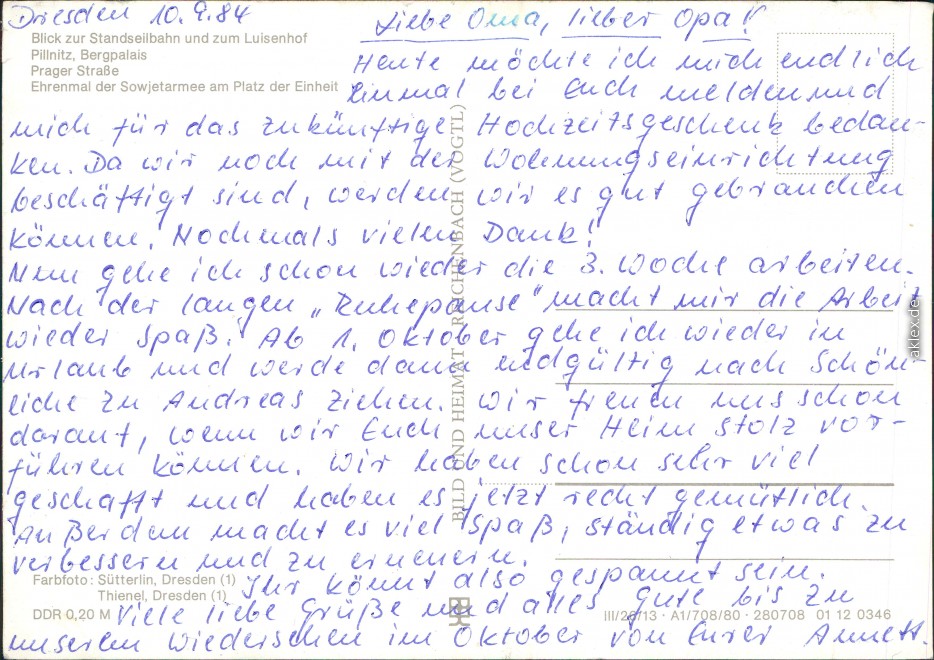 Dresden 10.9.84
Liebe Oma, lieber Opa!
Blick zur Standseilbahn und zum Luisenhof
Pillnitz, Bergpalais
Prager Straße
Ehrenmal der Sowjetarmee am Platz der Einheit
Heute möchte ich mich endlich
einmal bei Euch melden und
mich für das zukünftige Hochzeitsgeschenk bedan-
ken. Da wir noch mit der Wohnungseinrichtung
beschäftigt sind, werden wir es gut gebrauchen
können. Nochmals vielen Dank!
Nun gehe ich schon wieder die 3. Woche arbeiten.
Nach der langen „Ruhepause" macht mir die Arbeit
wieder Spaß. Ab 1. Oktober gehe ich wieder in
Urlaub und werde dann endgültig nach Schön-
eiche zu Andreas ziehen. Wir freuen uns schon
darauf, wenn wir Euch unser Heim stolz vor-
führen können. Wir haben schon sehr viel
geschafft und haben es jetzt recht gemütlich.
Außerdem macht es viel Spaß, ständig etwas zu
verbessern und zu erneuern.
Ihr könnt also gespannt sein.
Viele liebe Grüße und alles Gute bis zu
unserem Wiedersehen im Oktober von Eurer Annett.
BILD UND HEIMAT REICHENBACH (VOGTL)
Farbfoto: Sütterlin, Dresden (1)
Thienel, Dresden (1)
DDR 0,20 M
III/26/13 · A1/708/80 · 280708 01 12 0346
aklex.de